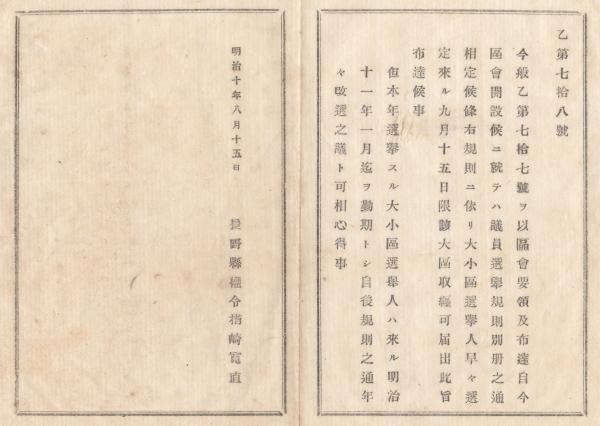 乙第七拾八號
今般乙第七拾七號ヲ以區會要領及布達自今
區會開設候ニ就テハ議員選擧規則別册之通
相定候條右規則ニ依リ大小區選擧人早々選
定來ル九月十五日限該大區取纏可届出此旨
布達候事
但本年選擧スル大小區選擧人ハ來ル明治
十一年一月迄ヲ勤期トシ自後規則之通年
々改選之議ト可相心得事
明治十年八月十五日
長野縣權令楢崎寛直